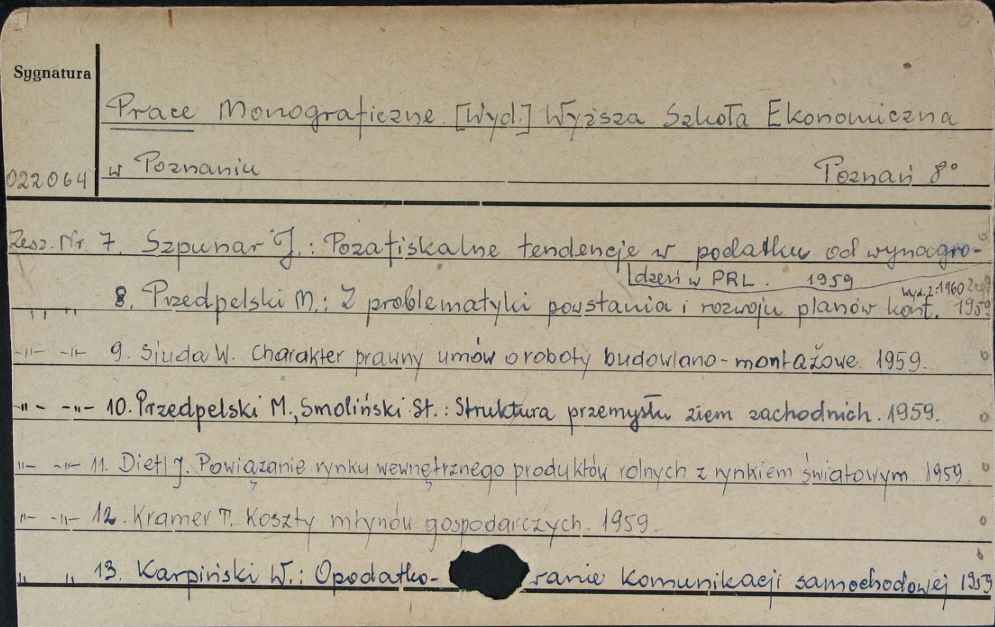 Sygnatura
Prace Monograficzne. [Wyd.] Wyższa Szkoła Ekonomiczna
022064 w Poznaniu Poznań 8°
Zesz. Nr 7. Szpunar J.: Pozafiskalne tendencje w podatku od wynagro-
dzeń w PRL. 1959
8. Przedpelski M.: Z problematyki powstania i rozwoju planów kont. 1959
Wyd. 2: 1960
-"- -"- 9. Siuda W. Charakter prawny umów o roboty budowlano-montażowe. 1959.
-"- -"- 10. Przedpelski M., Smoliński St.: Struktura przemysłu ziem zachodnich. 1959.
-"- -"- 11. Dietl J. Powiązanie rynku wewnętrznego produktów rolnych z rynkiem światowym 1959.
-"- -"- 12. Kramer T. Koszty młynów gospodarczych. 1959.
" " 13. Karpiński W.: Opodatko- wanie komunikacji samochodowej 1959